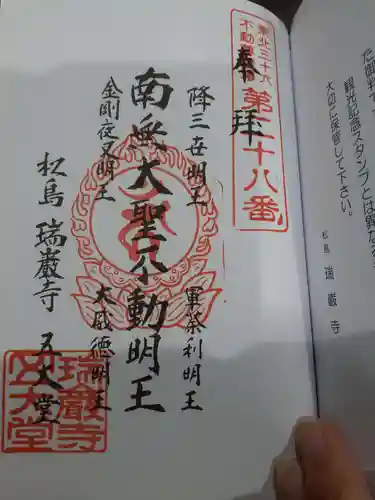 た御判で
観光記念スタンプとは異な
大切に保管して下さい。
松島 瑞巌寺
東北三十六
不動尊
第二十八番
奉拝
降三世明王
軍荼利明王
南無大聖不動明王
金剛夜叉明王
大威徳明王
松島 瑞巌寺 五大堂
瑞巌寺
五大堂